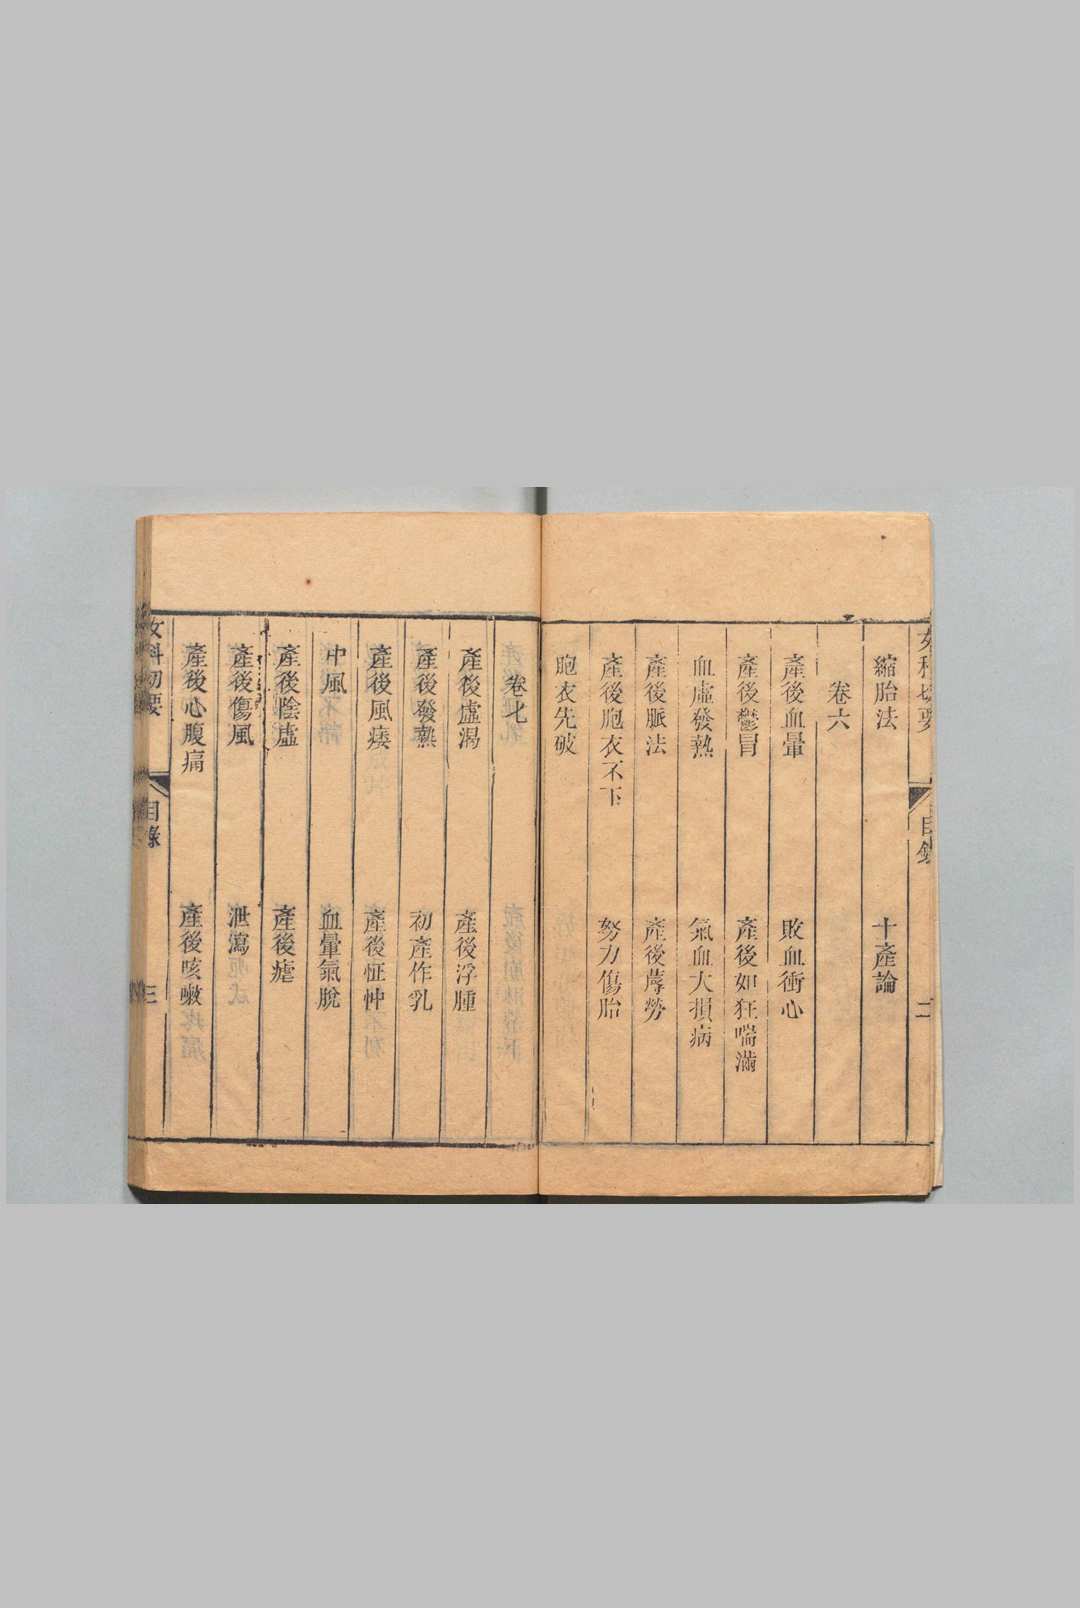 女科切要
目錄
二
縮胎法 十產論
卷六
產後血暈 敗血衝心
產後鬱冒 產後如狂喘滿
血虛發熱 氣血大損病
產後脈法 產後蓐勞
產後胞衣不下 努力傷胎
胞衣先破
卷七
產後虛渴 產後浮腫
產後發熱 初產作乳
產後風痿 產後怔忡
中風 血暈氣脫
產後陰虛 產後瘧
產後傷風 泄瀉
產後心腹痛 產後咳嗽
女科切要
目錄
三